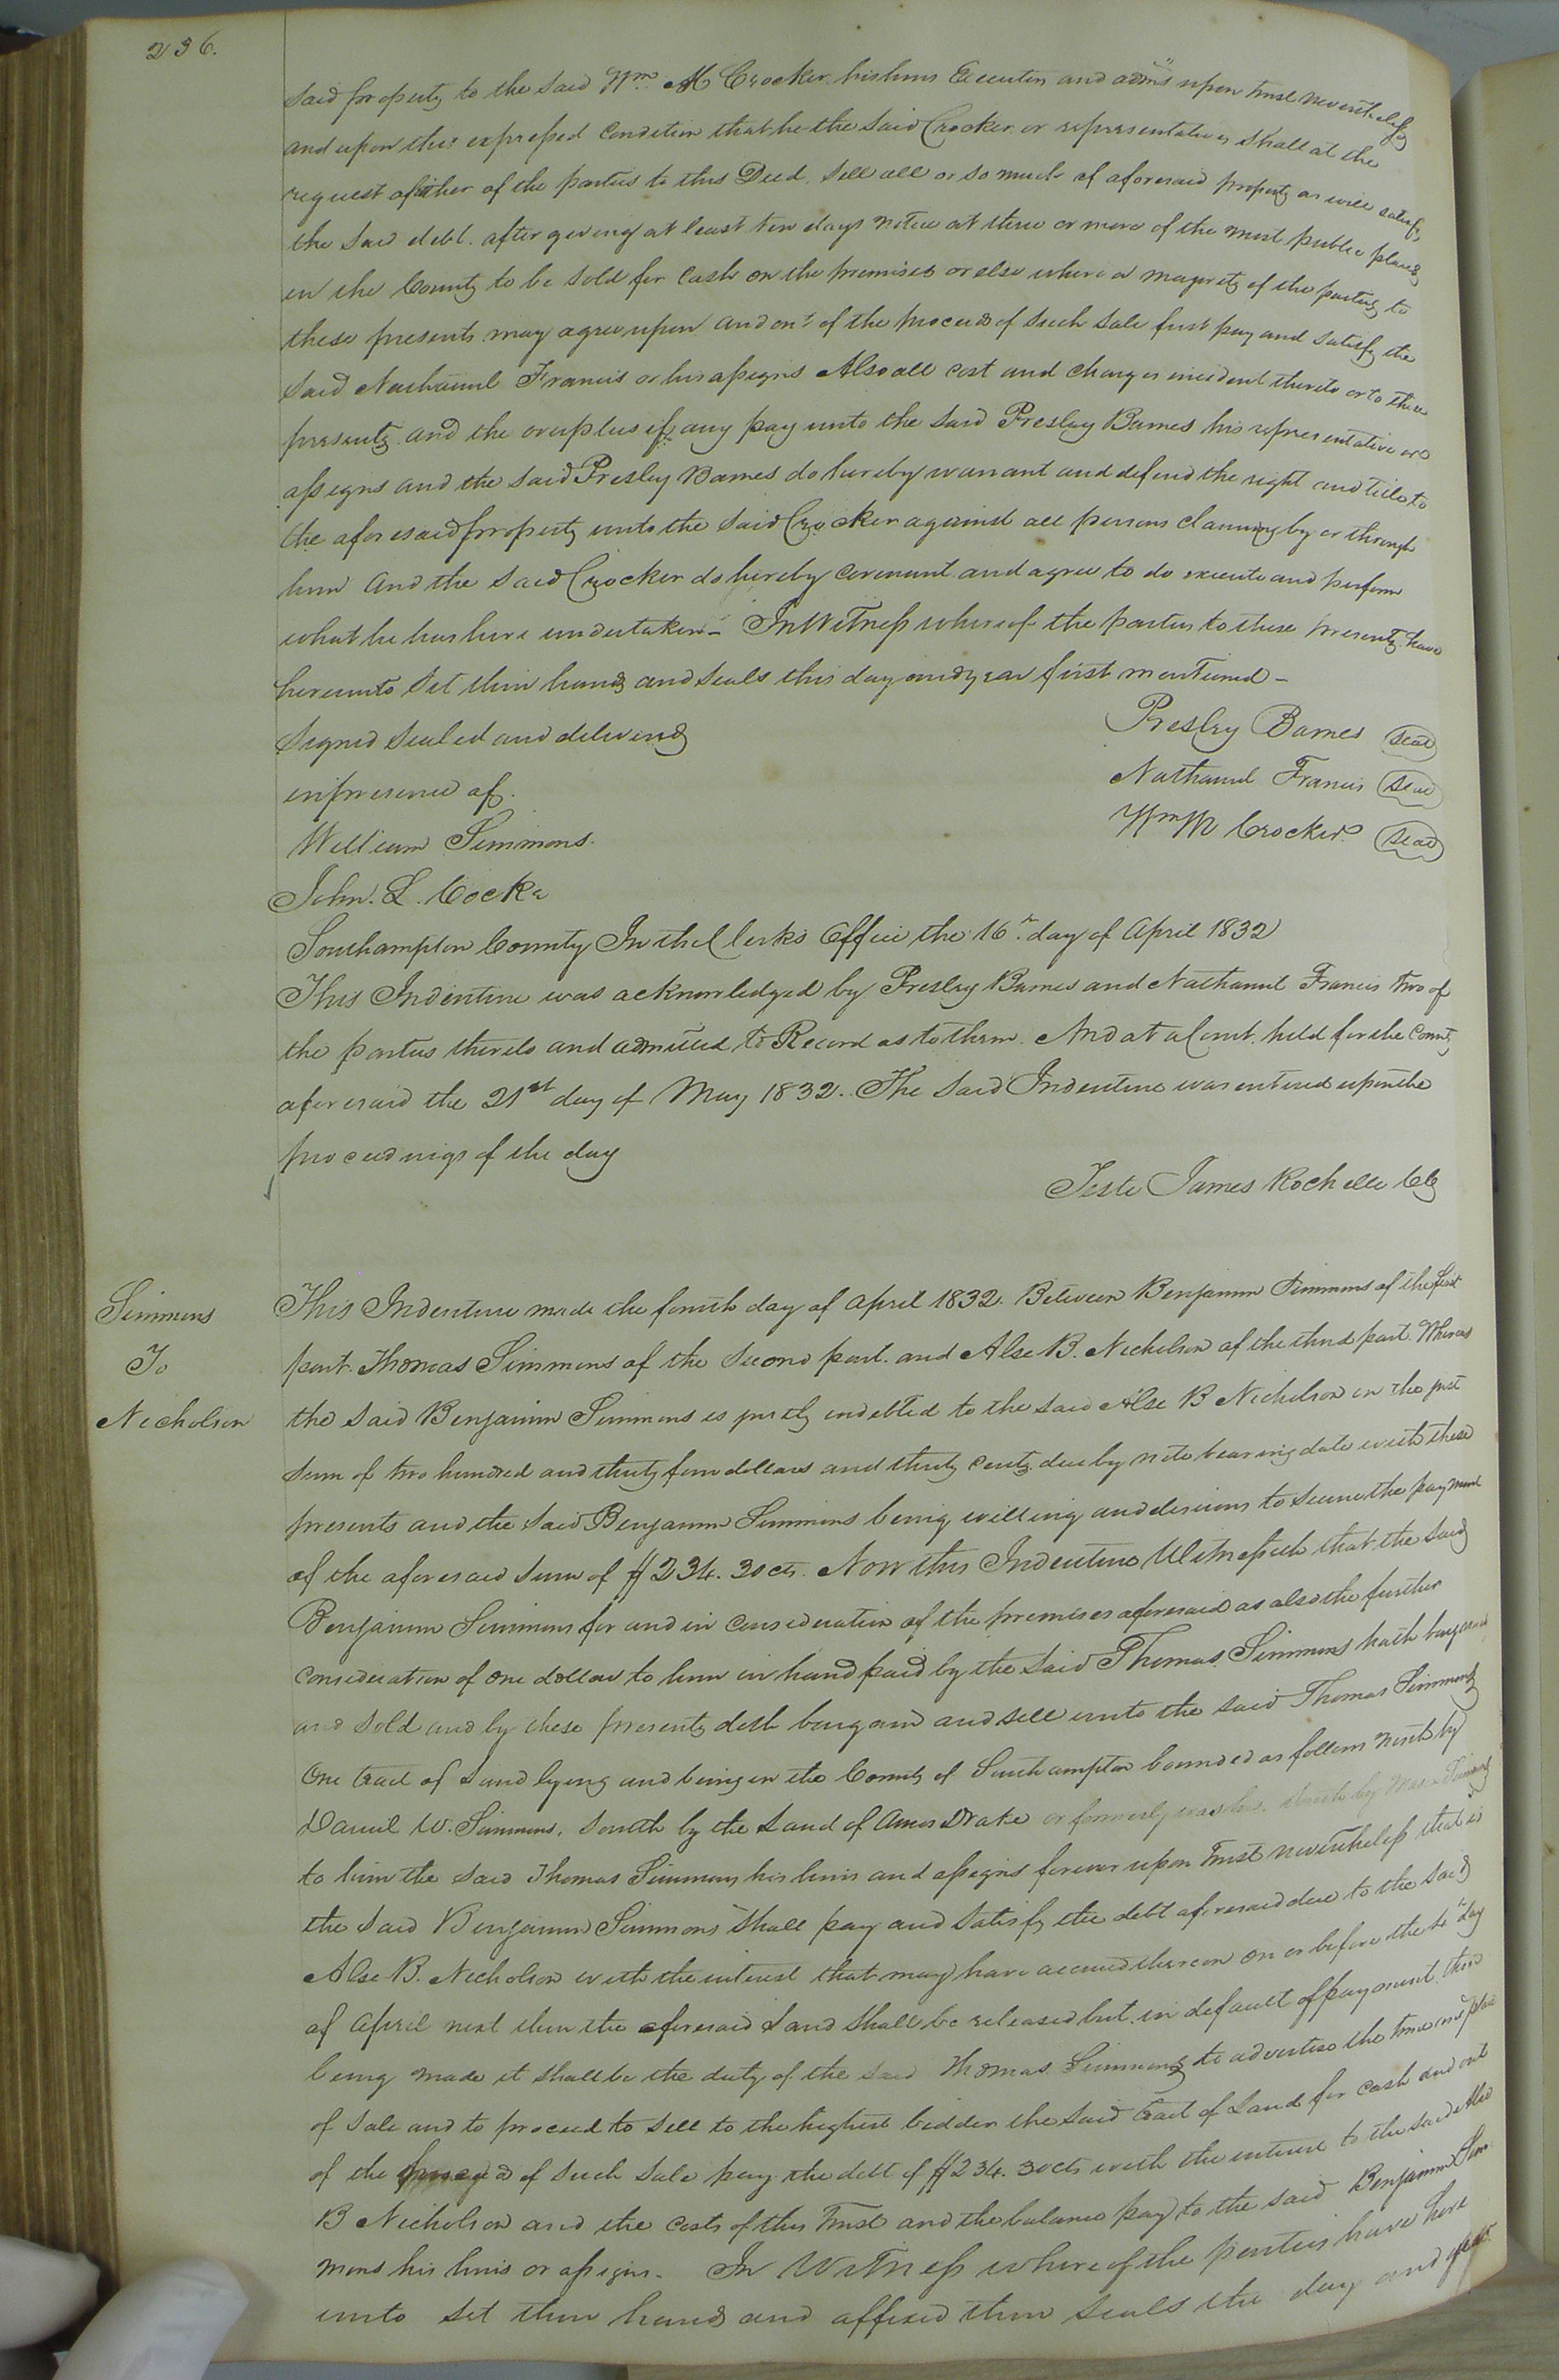 236.
said property to the said Wm. M Crocker his heirs Executors and adms upon trust nevertheless
and upon this expressed Condition that he the said Crocker or representatives shall at the
request of either of the parties to this Deed, sell all or so much of aforesaid property as will satisfy
the said debt. after giving at least ten days notice at three or more of the most public places
in the County to be sold for Cash on the premises or else where a majority of the parties to
these presents may agree upon and out of the proceeds of such sale first pay and satisfy the
said Nathaniel Francis or his assigns Also all cost and charges incident thereto or to these
presents and the overplus if any pay unto the said Presley Barnes his representative or
assigns and the said Presley Barnes do hereby warrant and defend the right and title to
the aforesaid property unto the said Crocker against all persons claiming by or through
him and the said Crocker do hereby covenant and agree to do execute and perform
what he has here undertaken - In Witness whereof the parties to these presents have
hereunto set their hands and seals this day and year first mentioned -
Signed sealed and delivered
in presence of.
William Simmons.
John. L. Cocke
Presley Barnes seal
Nathaniel Francis seal
Wm M Crocker seal
Southampton County In the Clerks Office the 16th day of April 1832
This Indenture was acknowledged by Presley Barnes and Nathaniel Francis two of
the parties thereto and admitted to Record as to them. And at a Court held for the County
aforesaid the 21st day of May 1832. The said Indenture was entered upon the
proceedings of the day
Teste James Rochelle Clk
Simmons
To
Nicholson
This Indenture made the fourth day of April 1832. Between Benjamin Simmons of the first
part. Thomas Simmons of the second part. and Alse B. Nicholson of the third part. Whereas
the said Benjamin Simmons is justly indebted to the said Alse B Nicholson in the just
sum of two hundred and thirty four dollars and thirty cents due by note bearing date with these
presents and the said Benjamin Simmons being willing and desirous to secure the payment
of the aforesaid sum of $234.30cts. Now this Indenture Witnesseth that the said
Benjamin Simmons for and in consideration of the premises aforesaid as also the further
consideration of one dollar to him in hand paid by the said Thomas Simmons hath bargained
and sold and by these presents doth bargain and sell unto the said Thomas Simmons
One tract of Land lying and being in the County of Southampton bounded as follows North by
Daniel W. Simmons, South by the Land of Amos Drake or formerly was his, by Simmons
to him the said Thomas Simmons his heirs and assigns forever upon Trust nevertheless that is
the said Benjamin Simmons shall pay and satisfy the debt aforesaid due to the said
Alse B. Nicholson with the interest that may have accrued thereon on or before the day
of April next then the aforesaid Land shall be released but in default of payment then
being made it shall be the duty of the said Thomas Simmons to advertise the time and place
of sale and to proceed to sell to the highest bidder the said tract of Land for cash and out
of the of such sale pay the debt of $234.30cts with the interest to the said Alse
B Nicholson and the costs of this Trust and the balance pay to the said Benjamin Sim
mons his heirs or assigns. In Witness whereof the parties have here
unto set their hands and affixed their seals the day and year